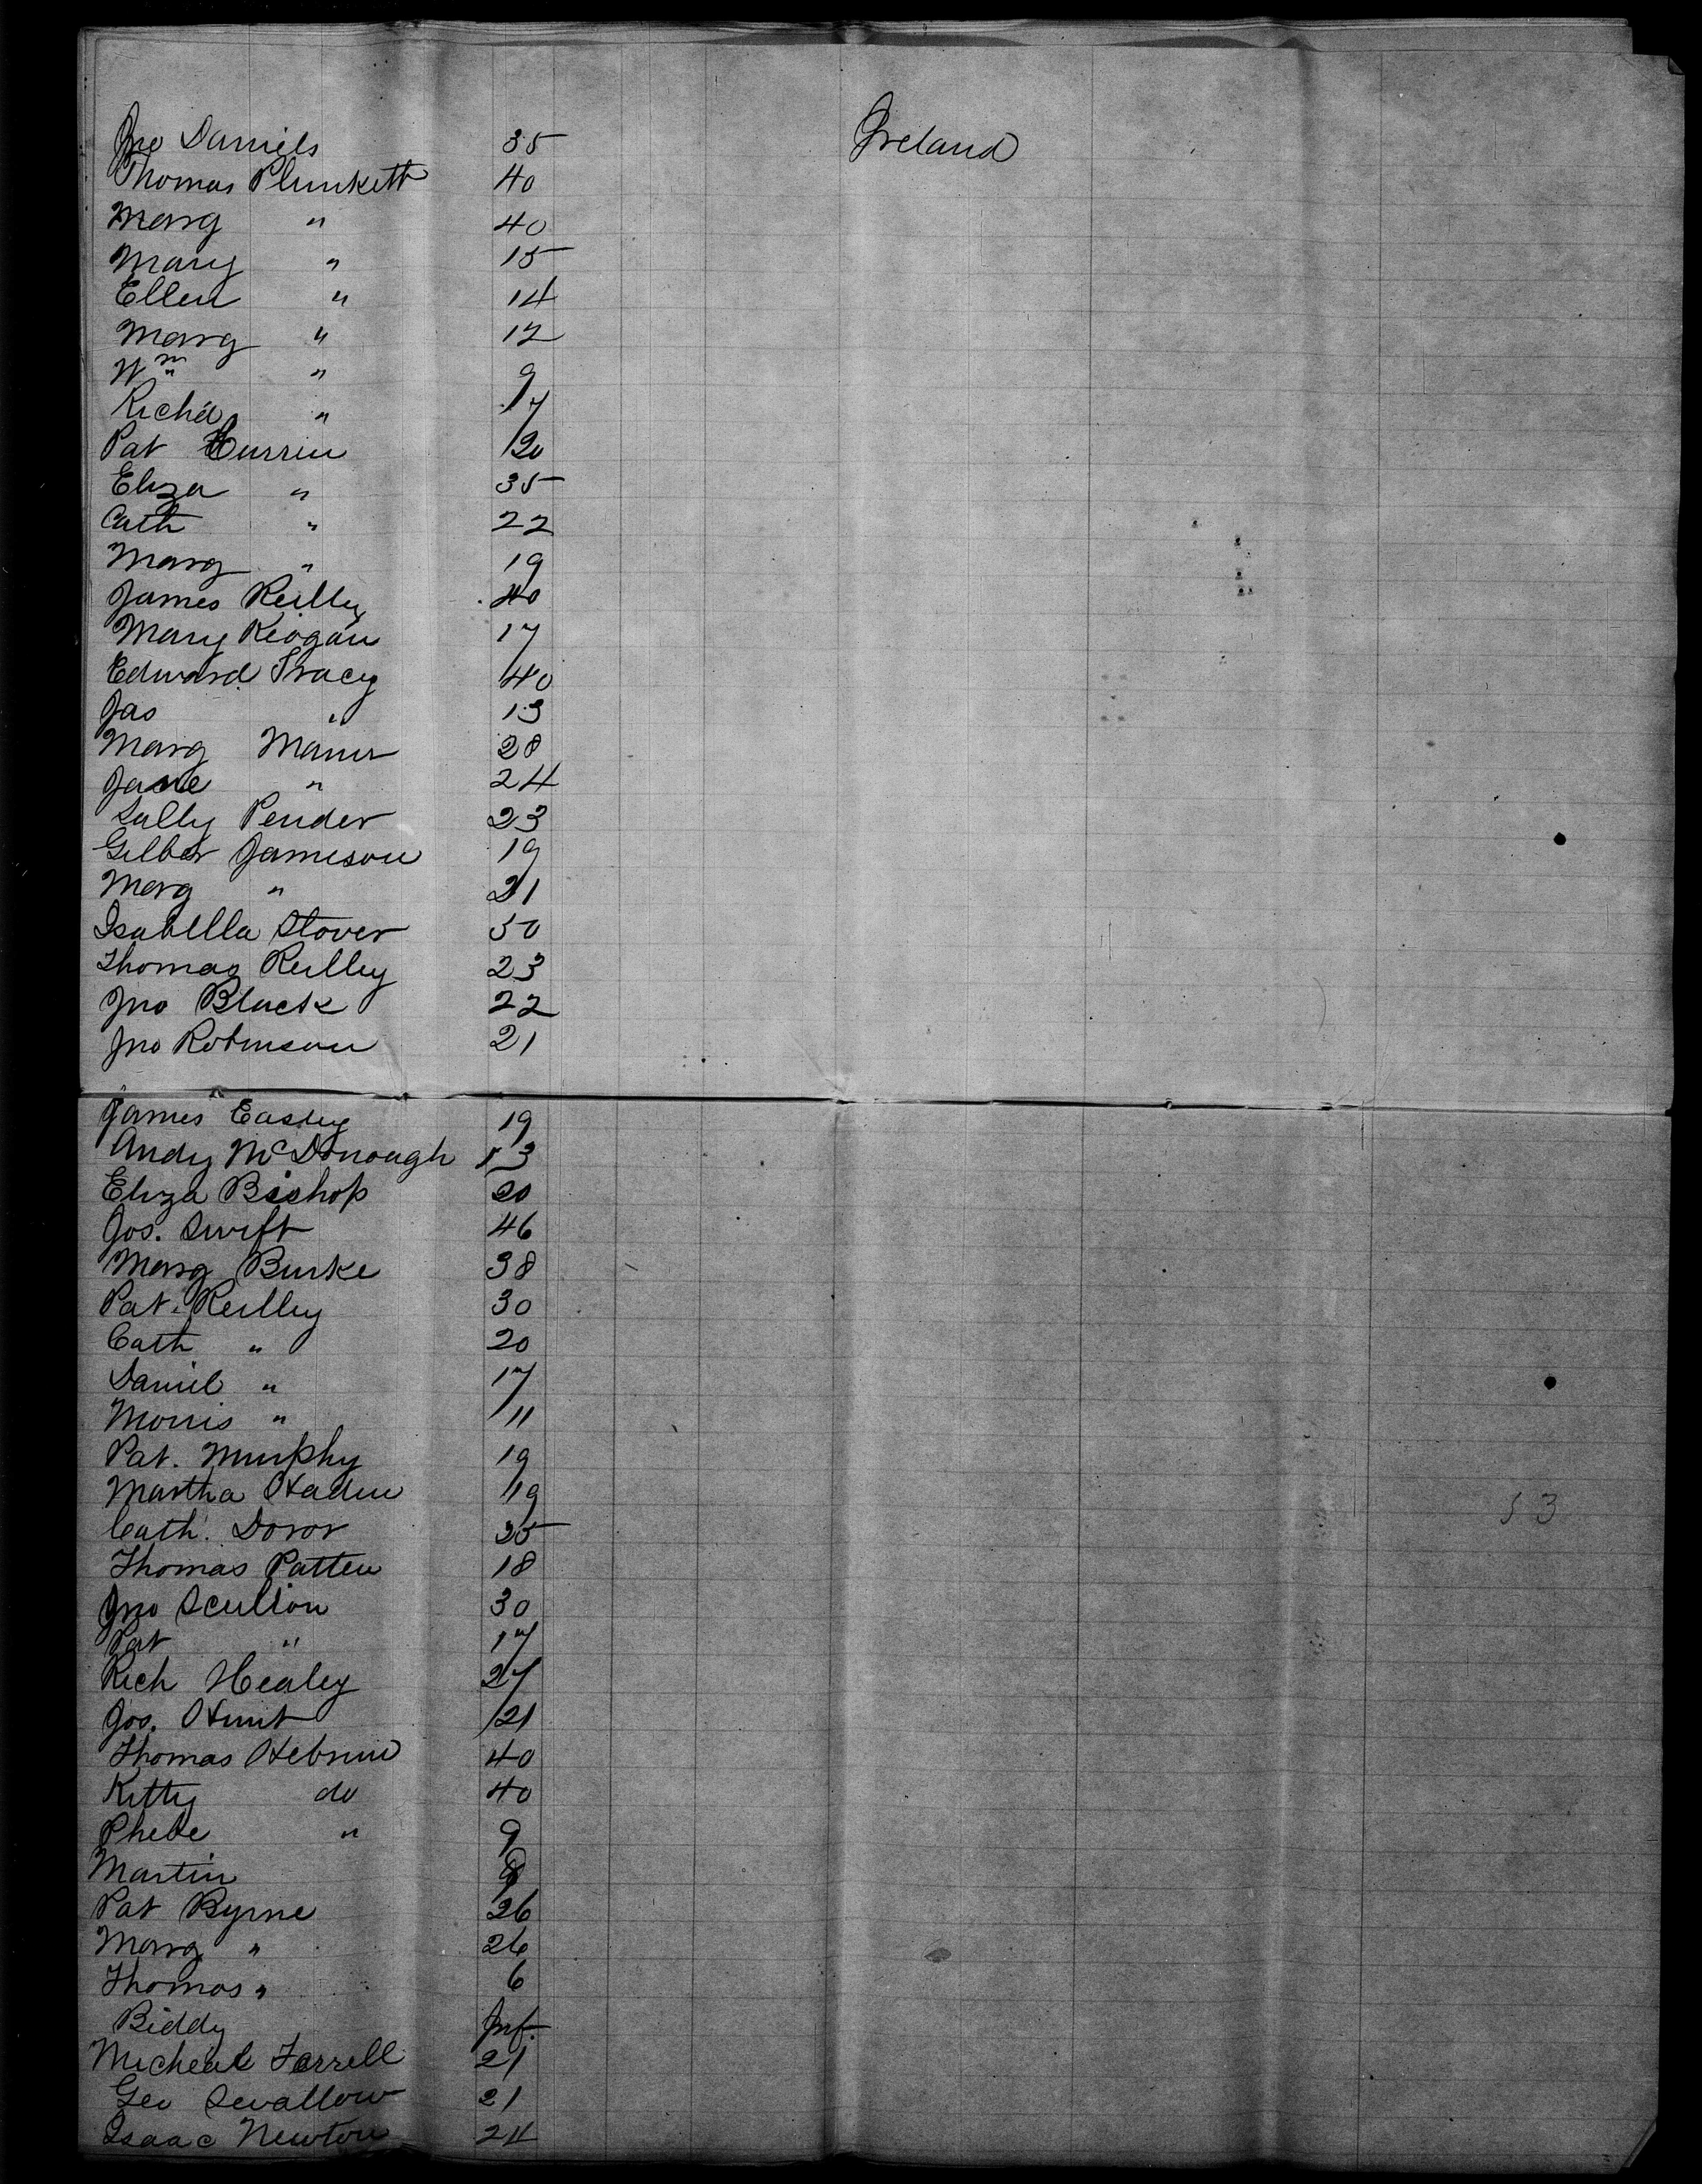 Jno Daniels 35 Ireland
Thomas Plunkett 40
Marg " 40
Mary " 15
Ellen " 14
Marg " 12
Wm " 9
Richd " 7
Pat Currin 20
Eliza " 35
Cath " 22
Marg " 19
James Reilley 40
Mary Keogan 17
Edward Tracy 40
Jas " 13
Marg 28
Jane " 24
Sally Pender 23
Gilber Jameson 19
Marg " 21
Isabella Stover 50
Thomas Reilley 23
Jno Black 22
Jno Robinson 21
James Easley 19
Andy McDonough 53
Eliza Bishop 20
Jos. Swift 46
Marg Burke 38
Pat. Reilley 30
Cath " 20
Daniel " 17
Morris " 11
Pat. Murphy 19
Martha Haden 19 53
Cath. Doror 35
Thomas Patten 18
Jno Scullion 30
Pat " 17
Rich Healey 27
Jos. Hunt 21
Thomas Hebrun 40
Kitty do 40
Phebe " 9
Martin
Pat Byrne 26
Marg " 26
Thomas " 6
Biddy Inf.
Micheal Farrell 21
Geo Swallow 21
Isaac Newton 24